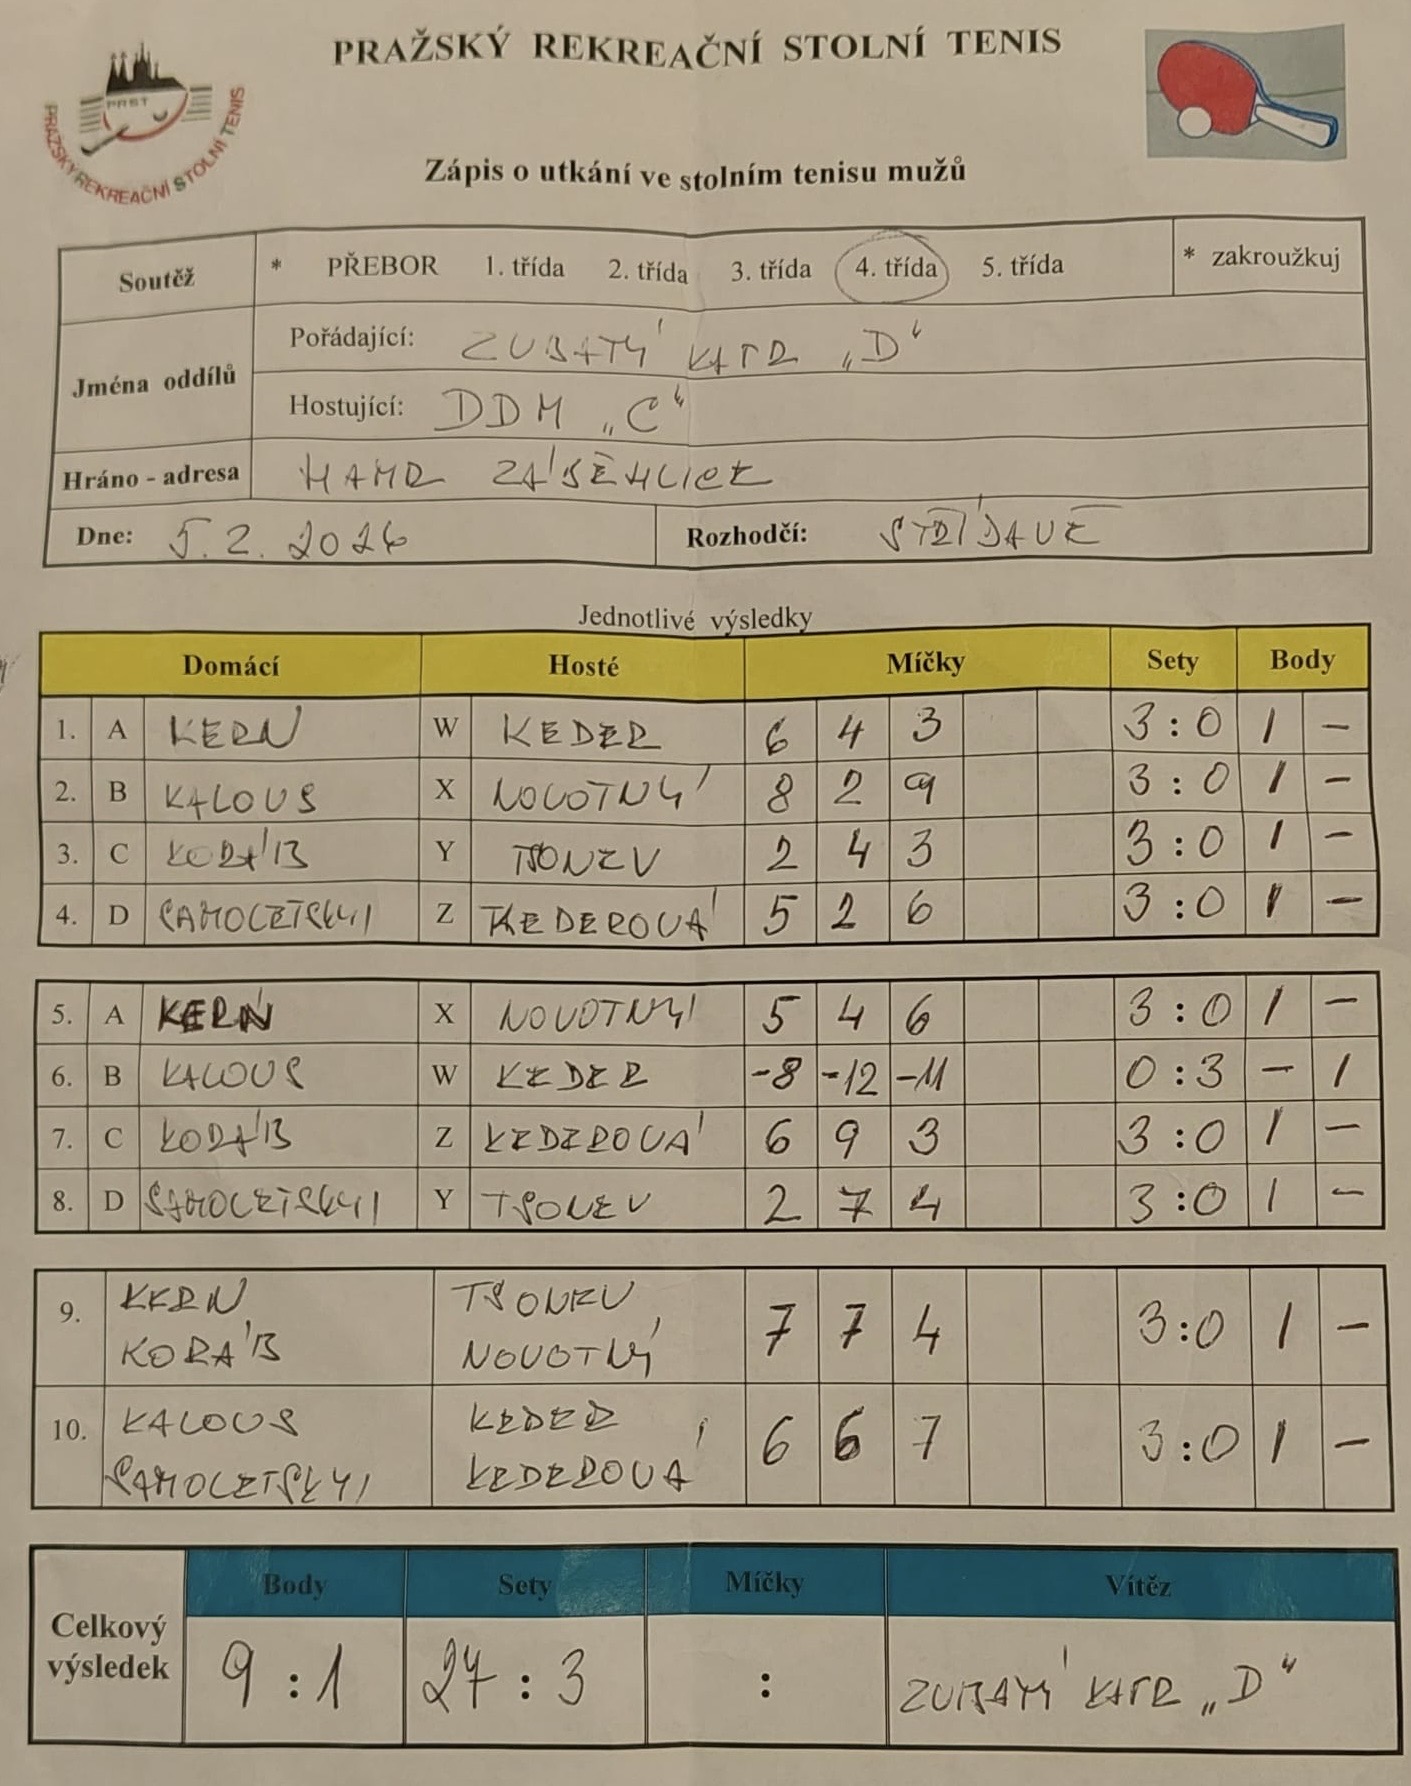 PRAŽSKÝ REKREAČNÍ STOLNÍ TENIS
PRST
PRAŽSKÝ REKREAČNÍ STOLNÍ TENIS
Zápis o utkání ve stolním tenisu mužů
Soutěž * PŘEBOR 1. třída 2. třída 3. třída 4. třída 5. třída * zakroužkuj
Jména oddílů
Pořádající: ZUBATÝ KATR „D“
Hostující: DDM „C“
Hráno - adresa HAMR ZÁBĚHLICE
Dne: 5. 2. 2026 Rozhodčí: STŘÍDAVĚ
Jednotlivé výsledky
Domácí Hosté Míčky Sety Body
1. A KERN W KEDER 6 4 3 3 : 0 1 –
2. B KALOUS X NOVOTNÝ 8 2 9 3 : 0 1 –
3. C KORÁB Y TSONEV 2 4 3 3 : 0 1 –
4. D SAMOLETSKÝ Z KEDEROVÁ 5 2 6 3 : 0 1 –
5. A KERN X NOVOTNÝ 5 4 6 3 : 0 1 –
6. B KALOUS W KEDER -8 -12 -11 0 : 3 – 1
7. C KORÁB Z KEDEROVÁ 6 9 3 3 : 0 1 –
8. D SAMOLETSKÝ Y TSONEV 2 7 4 3 : 0 1 –
9. KERN TSONEV 7 7 4 3:0 1 –
KORÁB NOVOTNÝ
10. KALOUS KEDER 6 6 7 3:0 1 –
SAMOLETSKÝ KEDEROVÁ
Body Sety Míčky Vítěz
Celkový výsledek 9 : 1 27 : 3 : ZUBATÝ KATR „D“